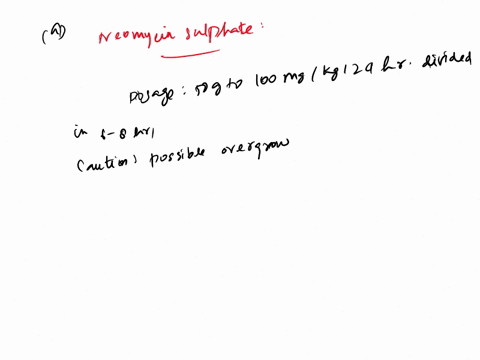 (a) Neomycin sulphate:
Dosage: 50g to 100 mg/kg/24 hr. divided
in 6-8 hr,
Caution: possible overgrow